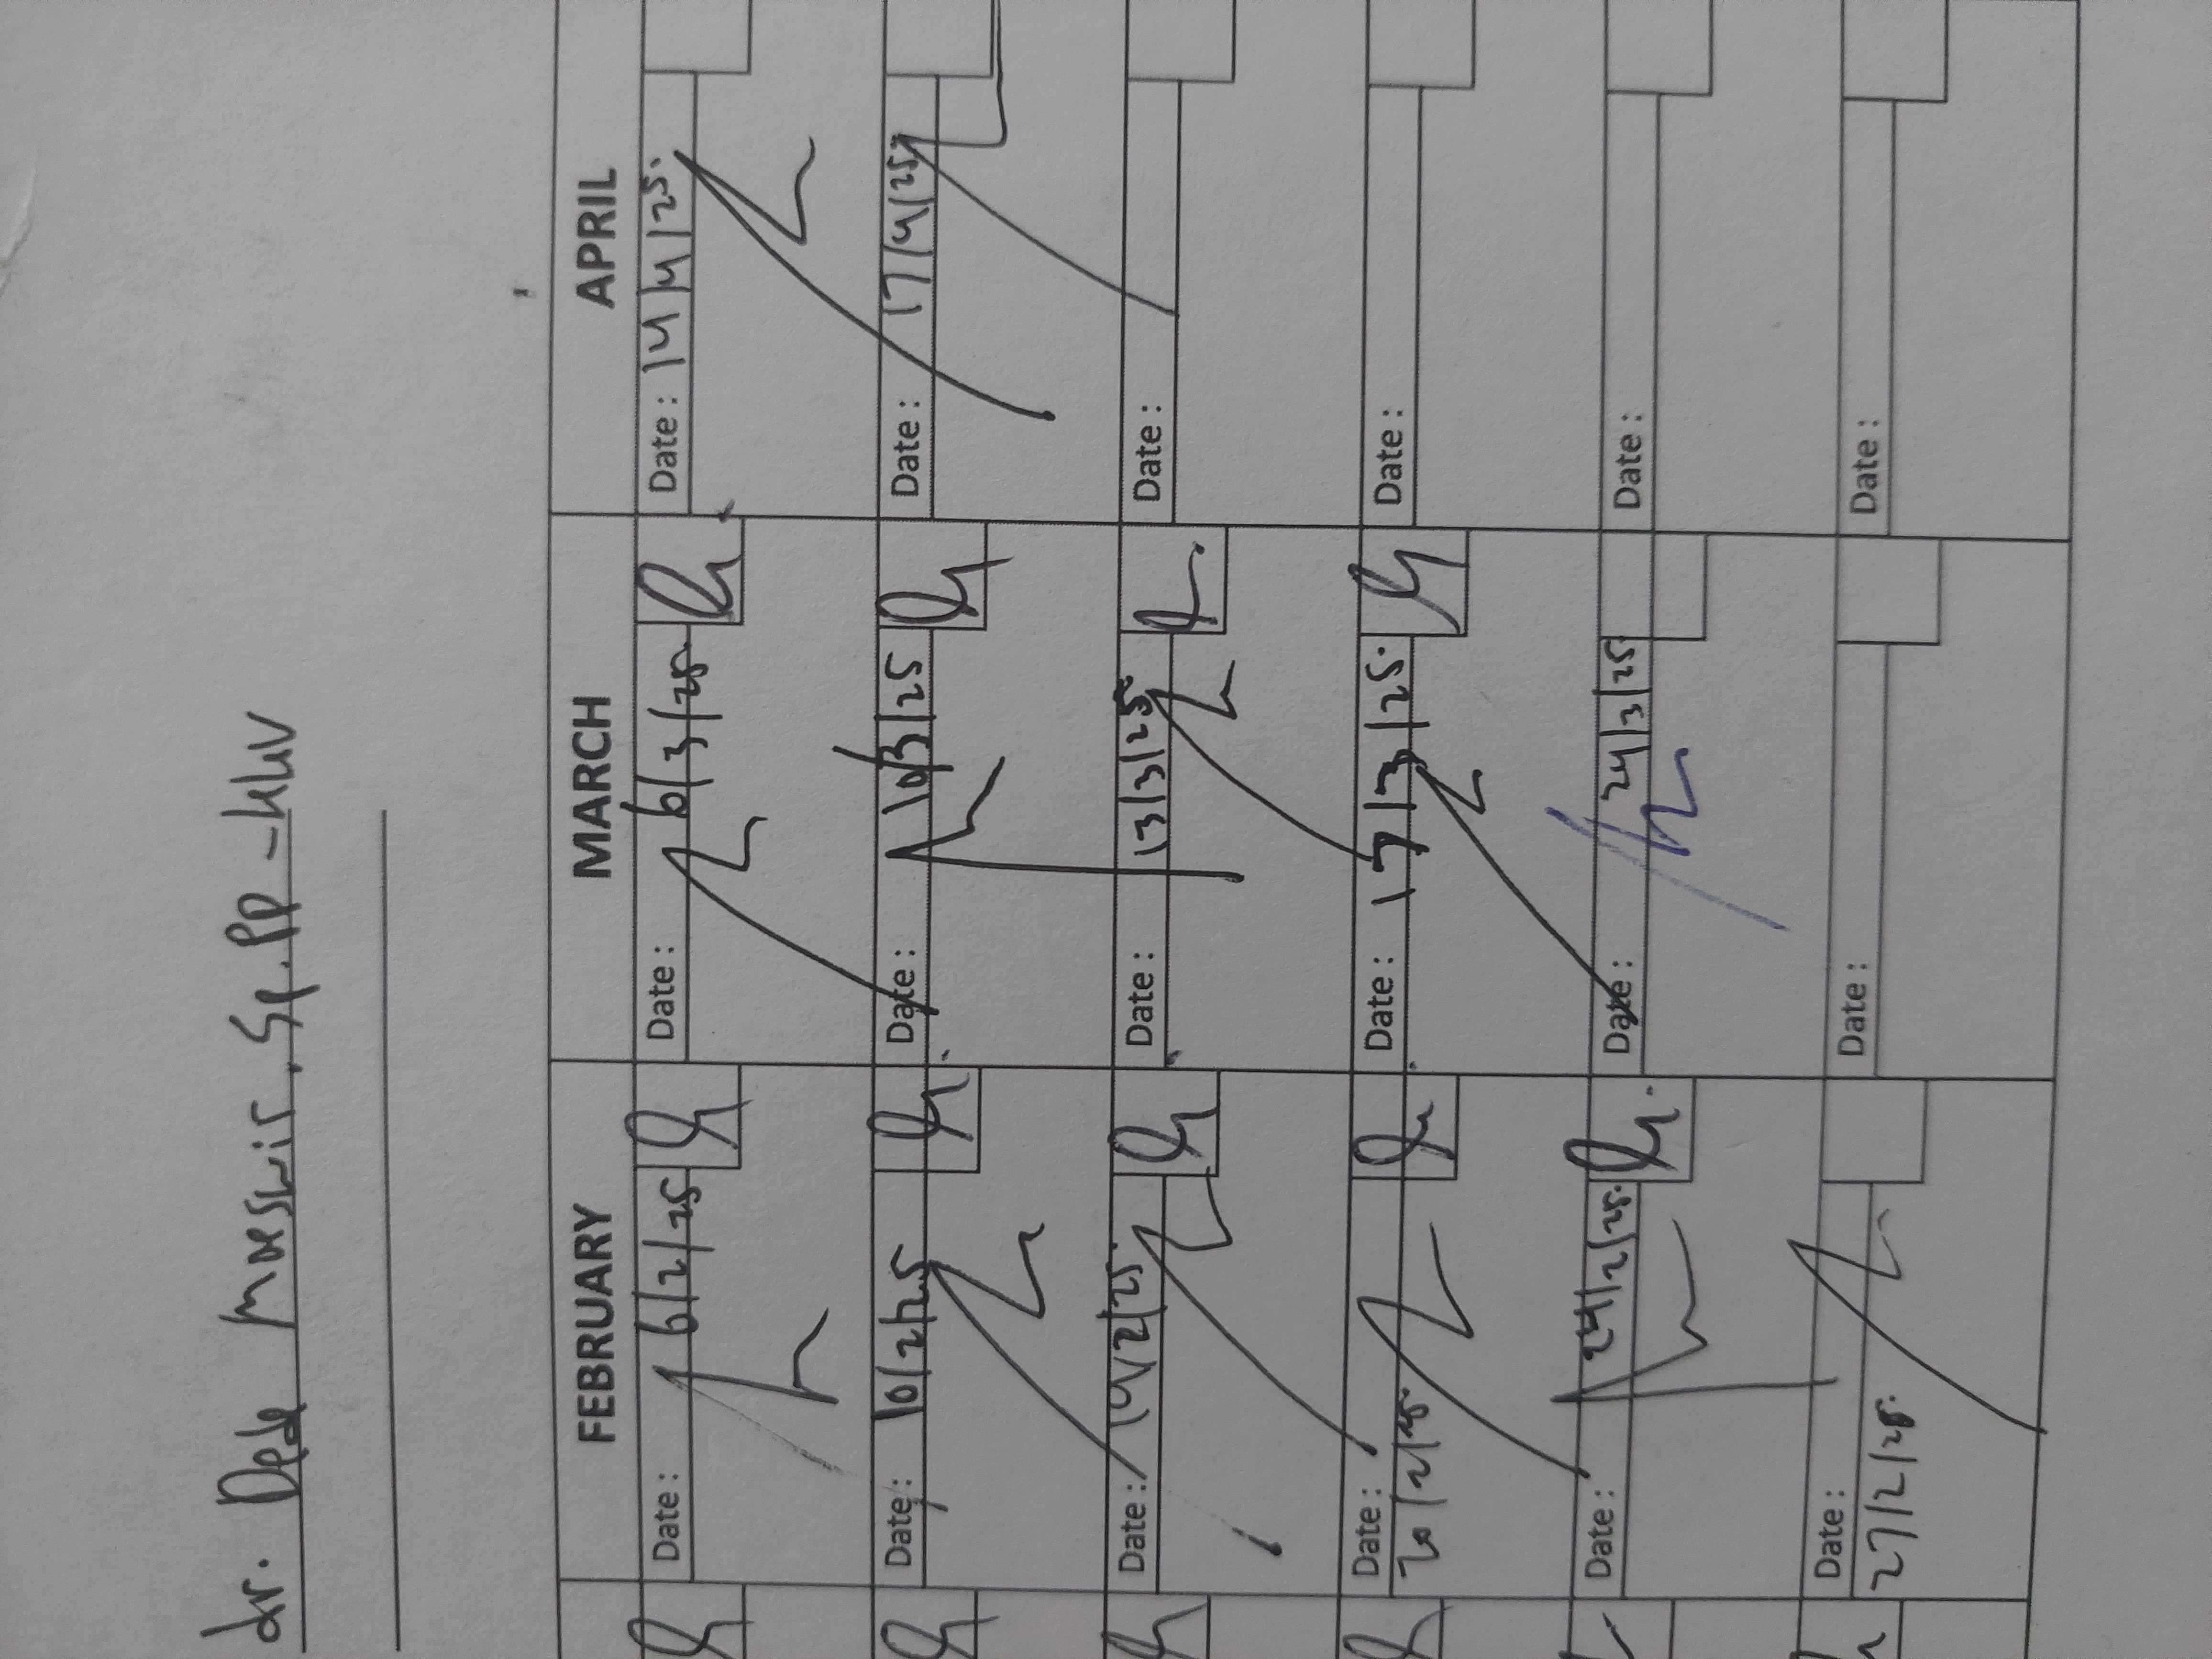 dr. Dede Moeswir, Sp.PD-KHV
FEBRUARY MARCH APRIL
Date: 6/2/25 Date: 6/3/25 Date: 14/4/25.
Date: 10/2/25 Date: 10/3/25 Date: 17/4/25
Date: 14/2/25. Date: 13/3/25 Date:
Date: 20/2/25. Date: 17/3/25. Date:
Date: 24/2/25. Date: 24/3/25 Date:
Date: 27/2/25. Date: Date: